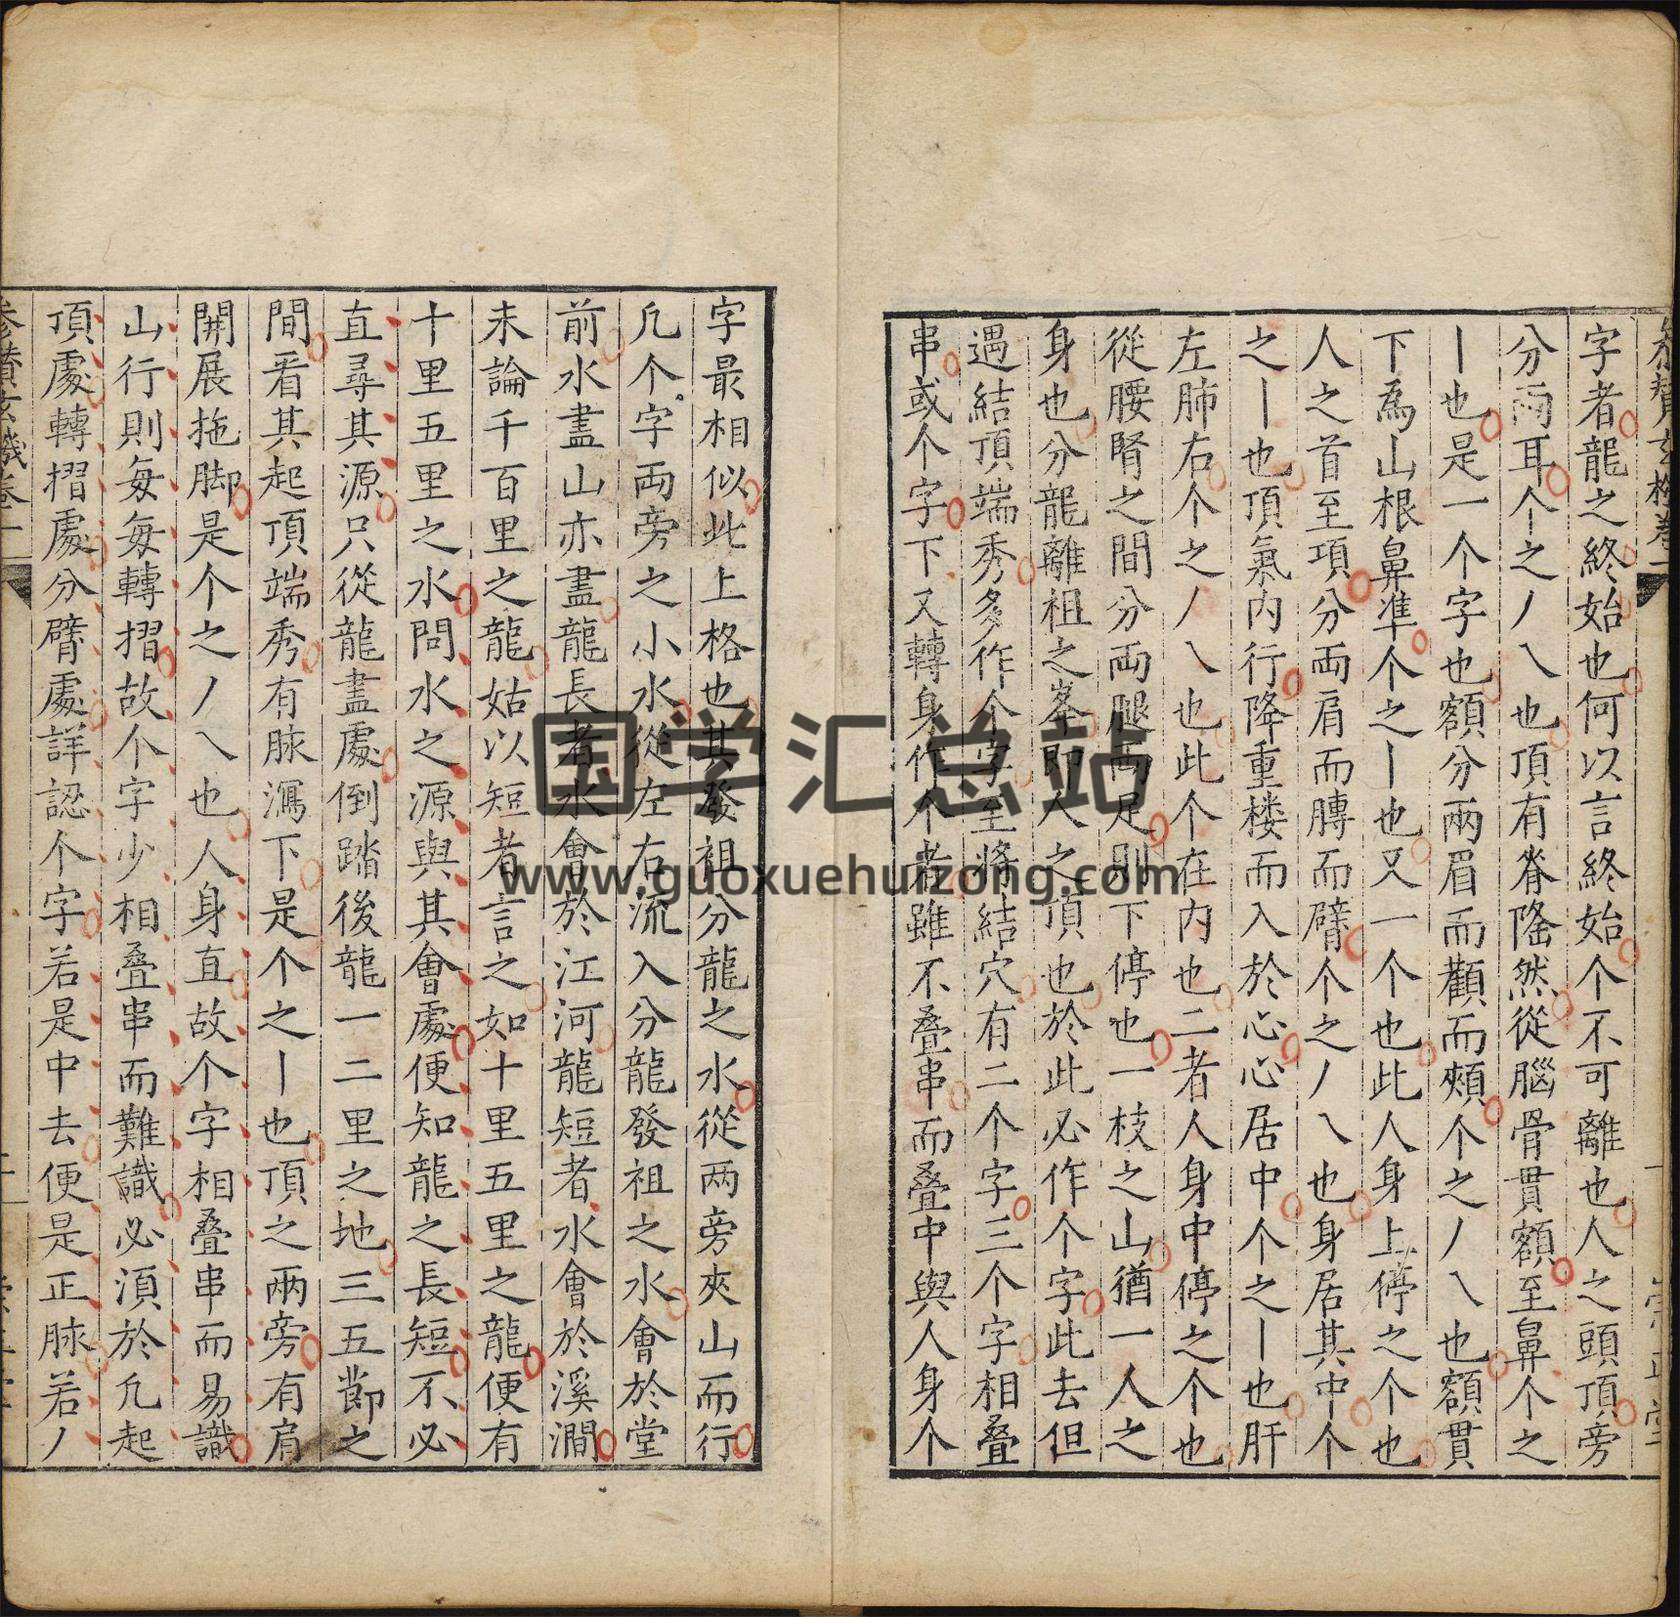 字者龍之終始也何以言終始个不可離也人之頭頂旁
分兩耳个之丿乀也頂有脊隆然從腦骨貫額至鼻个之
丨也是一个字也額分兩眉而顴而頰个之丿乀也額貫
下為山根鼻準个之丨也又一个也此人身上停之个也
人之首至項分両肩而膊而臂个之丿乀也身居其中个
之丨也頂氣內行降重楼而入於心心居中个之丨也肝
左肺右个之丿乀也此个在内也二者人身中停之个也
從腰腎之間分両腿両足則下停也一枝之山猶一人之
身也分龍離祖之峯即人之頂也於此必作个字此去但
遇結頂端秀多作个字至將結穴有二个字三个字相叠
串或个字下又轉身作个者雖不叠串而叠中與人身个
字最相似此上格也其發祖分龍之水從两旁夾山而行
凢个字両旁之小水從左右流入分龍發祖之水會於堂
前水盡山亦盡龍長者水會於江河龍短者水會於溪澗
未論千百里之龍姑以短者言之如十里五里之龍便有
十里五里之水問水之源與其會處便知龍之長短不必
直尋其源只從龍盡處倒踏後龍一二里之地三五節之
間看其起頂端秀有脉瀉下是个之丨也頂之兩旁有肩
開展拖脚是个之丿乀也人身直故个字相叠串而易識
山行則每每轉摺故个字少相叠串而難識必湏於凢起
頂處轉摺處分臂處詳認个字若是中去便是正脉若丿
国学汇总站
www.guoxuehuizong.com